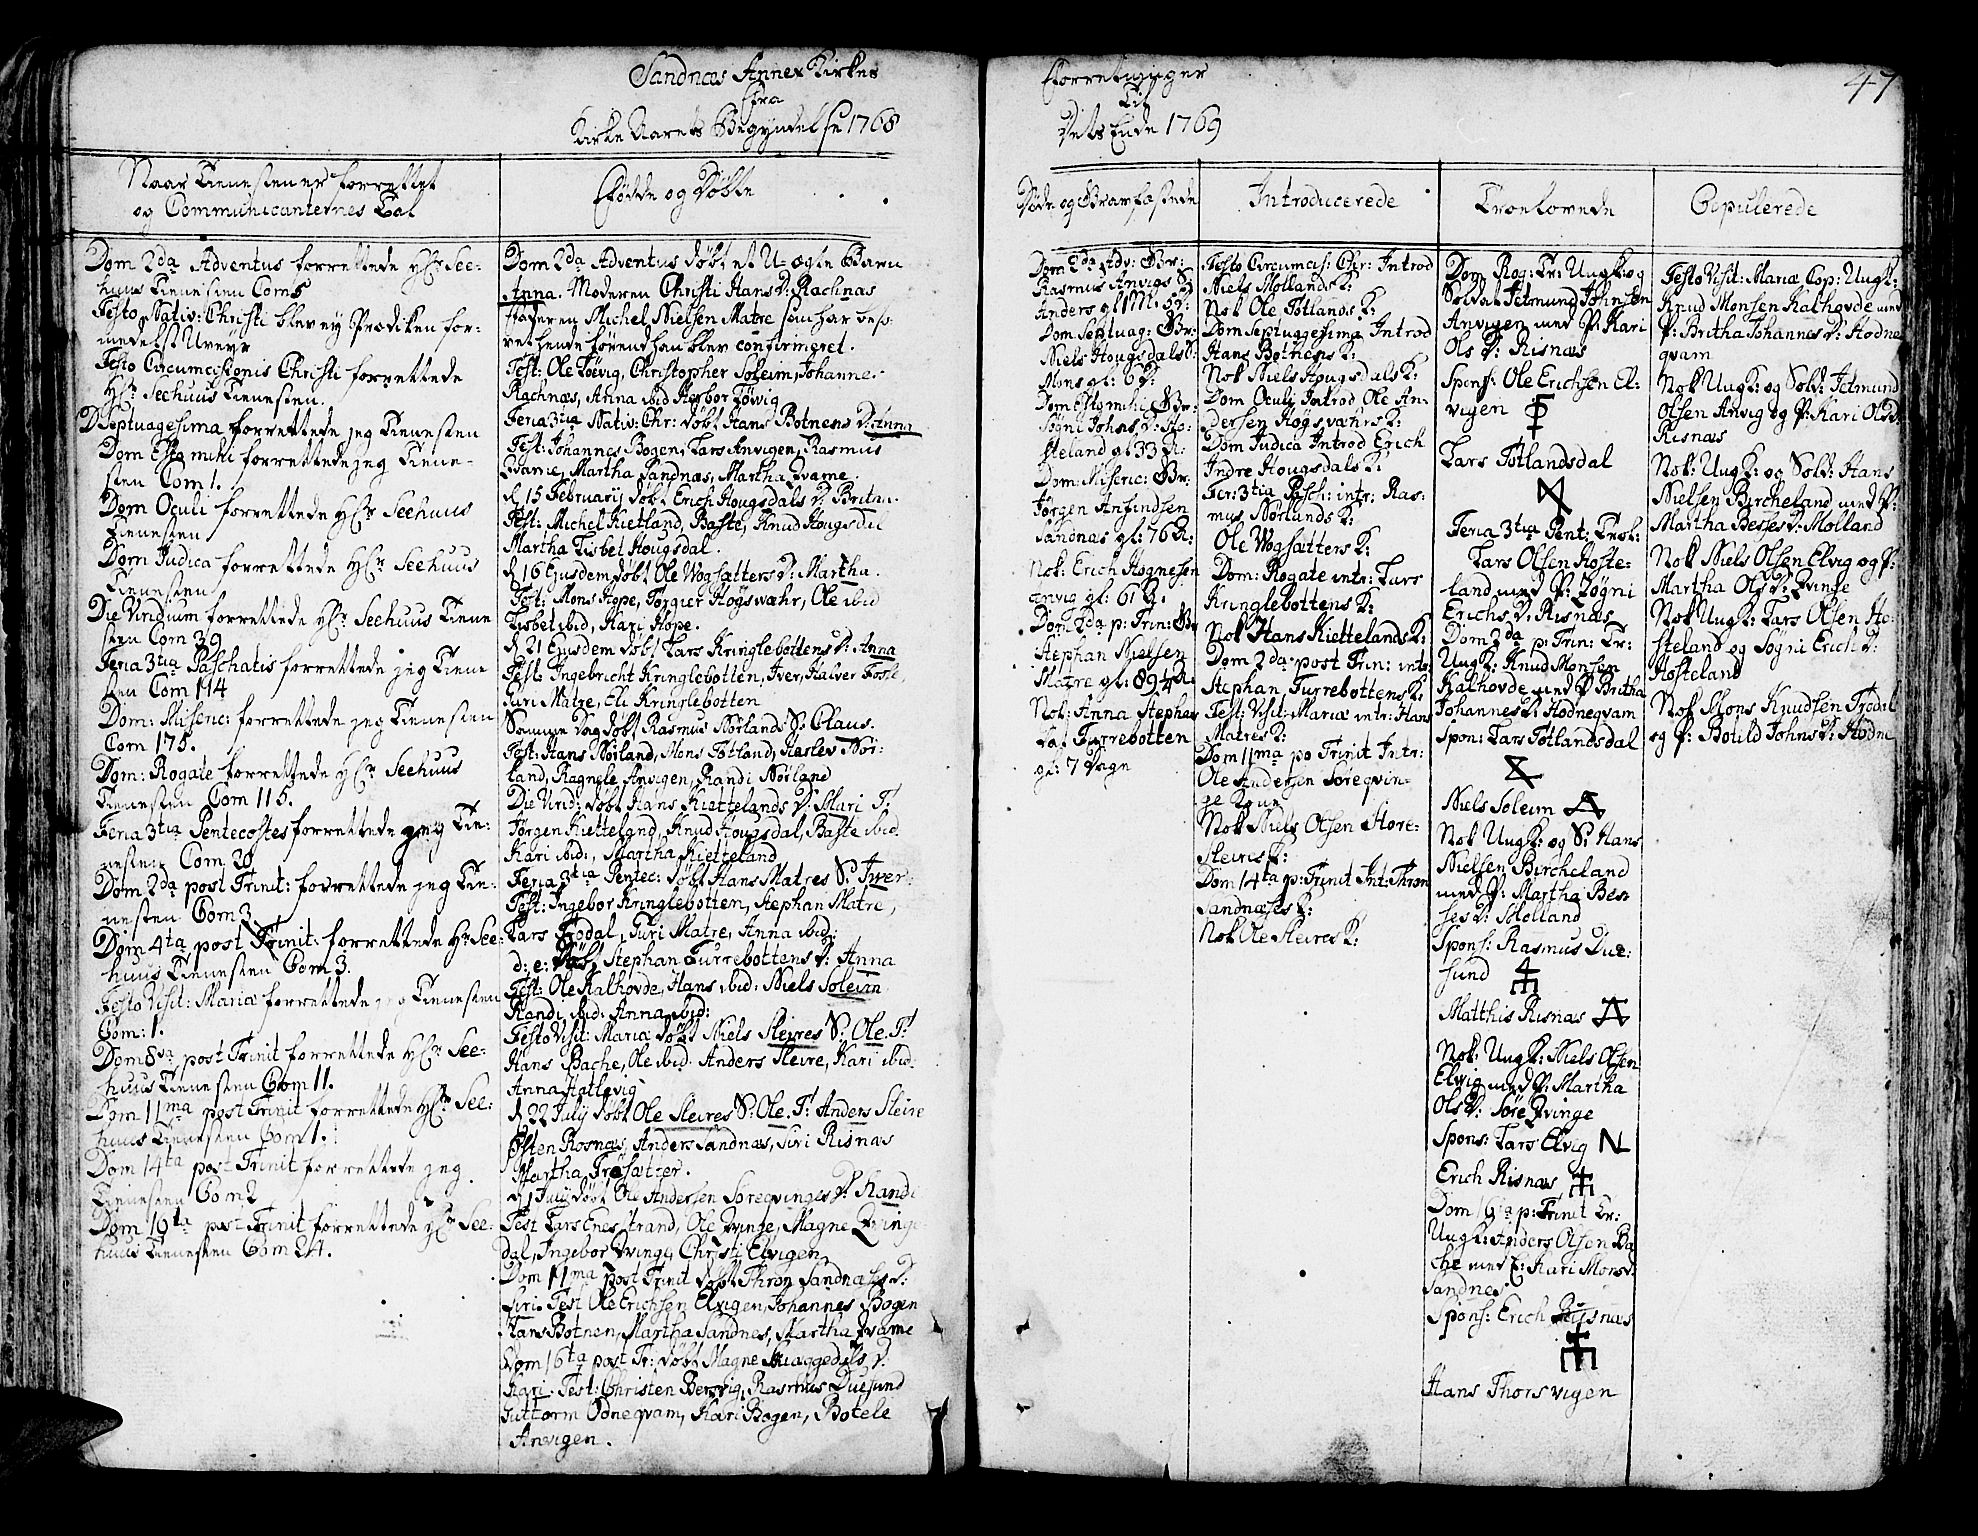 Sandnæs Annex Kirkes
Fra
Kirke Aarets Begyndelse 1768
Naar Tienesten er forrettet
og Communicanternes Tal
Dom 2da Adventus forrettede Hr See-
huus Tienesten Com 5
Festo Nativ: Christi blev ey Prediken for-
medelst Uveyr
Festo Circumcisionis Christi forrettede
Hr Seehuus Tienesten.
D Septuagesima forrettede jeg Tienesten
Dom Esto mihi forrettede jeg Tiene-
sten Com 1.
Dom Oculi forrettede Hr Seehuus
Tienesten
Dom Judica forrettede Hr Seehuus
Tienesten
Die Viridium forrettede Hr Seehuus Tiene
sten Com 39
Feria 3tia Paschatis forrettede jeg Tiene
sten Com 114
Dom: Miseric: forrettede jeg Tienesten
Com 175.
Dom: Rogate forrettede Hr Seehuus
Tienesten Com 115.
Feria 3tia Pentecostes forrettede jeg Tie-
nesten Com 20
Dom 2da post Trinit: forrettede jeg Tie-
nesten Com 3
Dom 4ta post Trinit: forrettede Hr See-
huus Tienesten Com 3.
Festo Visit: Mariæ forrettede jeg Tienesten
Com: 1.
Dom 8va post Trinit forrettede Hr See-
huus Tienesten Com 11.
Dom 11ma post Trinit forrettede Hr See-
huus Tienesten Com 1.
Dom 14ta post Trinit forrettede jeg
Tienesten Com 2
Dom 19ta post Trinit forrettede Hr See-
huus Tienesten Com 24.
Fødde og Døbte
Dom 2da Adventus døbt et U-ægte Barn
Anna. Moderen Christi Hans D: Rachnæs
Faderen Michel Nielsen Matre som har beso
vet hende førend han blev confirmeret.
Test: Ole Tøevig, Christopher Soleim, Johanne
Rachnæs, Anna ibid Herbor Tøvig
Feria 3tia Nativ: Chr: døbt Hans Botnens D: Anna
Test: Johannes Bogen, Lars Anvigen, Rasmus
Qvame, Martha Sandnæs, Martha Qvame
d 15 Februarij døbt Erich Hougsdals D. Britha.
Test: Michel Kietland, Baste, Knud Hougsdal
Martha Lisbet Hougsdal.
d 16 Ejusdem døbt Ole Wogsætters D: Martha.
Test: Mons Hope, Torgier Høgswæhr, Ole ibid
Lisbet ibid, Kari Hope.
d 21 Ejusdem døbt Lars Kringlebottens D: Anna
Test: Ingebricht Kringlebotten, Iver, Halver Fosse,
Turi Matre, Eli Kringlebotten
Samme Dag døbt Rasmus Nørlands S: Claus.
Test: Hans Nørland, Mons Totland, Haslev Nør-
land, Ragnele Anvigen, Randi Nørland
Die Virid: døbt Hans Kiettelands D: Mari T:
Jørgen Kietteland, Knud Hougsdal, Baste ibid.
Kari ibid:, Martha Kietteland
Feria 3tia Pentec: døbt Hans Matres S: Iver
Test: Ingebor Kringlebotten, Stephan Matre,
Lars Trodal, Turi Matre, Anna ibid:
d: e: døbt Stephan Furrebottens D: Anna
Test: Ole Kalhovde, Hans ibid: Niels Soleim
Randi ibid: Anna ibid:
Festo Visit: Mariæ døbt Niels Sleires S: Ole. T:
Hans Bache, Ole ibid. Anders Sleire, Kari ibid.
Anna Hatlevig
d 22 July døbt Ole Sleires S: Ole. T: Anders Sleire
Østen Rosnæs, Anders Sandnæs, Siri Risnæs
Martha Træsætter.
d 1 July døbt Ole Andersen Søreqvinges D: Randi
Test Lars Enestrand, Ole Qvinge, Magne Qvinge
dal, Ingebor Qvinge, Christi Elvigen,
Dom 11ma post Trinit døbt Thron Sandnæses D:
Siri. Test Ole Erichsen Elvigen, Johannes Bogen
Hans Botnen, Martha Sandnes, Martha Qvame
Dom 16ta post Tr: døbt Magne Haaggedals D.
Kari. Test: Christen Bersvig, Rasmus Duesund
Guttorm Odneqvam, Kari Bogen, Botele
Anvigen.
Forretninger
Til
Dets Ende 1769
47
Døde og Bravfæstede
Dom 2da Adv: Br:
Rasmus Anvigs S
Anders gl M. 5 D:
Dom Septuag: Br:
Niels Hougsdals S:
Mons gl: 6 D:
Dom Esto mihi Br:
Søgni Johns D: Ho-
steland gl 33 A:
Dom: Miseric: Br:
Jørgen Anfindsen
Sandnæs gl: 76 A:
Nok: Erich Hognesen
Anvig gl: 61 A:
Dom 2da p: Trin: Br
Stephan Nielsen
Matre gl: 89¼ A:
Nok: Anna Stephans
Dat Furrebotten
gl: 7 Dage
Introducerede
Festo Circumcis: Chr: Introd
Niels Mollands K:
Nok Ole Totlands K:
Dom Septuggesima Introd
Hans Botnens K:
Nok Niels Hougsdals K:
Dom Oculi Introd Ole An-
dersen Høgswæhrs K:
Dom Judica Introd Erich
Indre Hougsdals K:
Fer: 3tia Pasch: intr: Ras-
mus Nørlands K:
Ole Wogsætters K:
Dom: Rogate intr: Lars
Kringlebottens K:
Nok Hans Kiettelands K:
Dom 2da post Trin: intr:
Stephan Furrebottens K:
Fest: Visit: Mariæ intr: Hans
Matres K:
Dom 11ma po Trinit Intr:
Ole Andersen Søreqvin-
ge Kone
Nok Niels Olsen Store-
Sleires K:
Dom 14ta p: Trinit Int: Thron
Sandnæses K:
Nok Ole Sleires K:
Troelovede
Dom Rog: Tr: Ungk: og
Soldat Jetmund Johnsen
Anvigen med P: Kari
Ols D: Risnæs
Spons: Ole Erichsen El-
vigen
Lars Totlandsdal
Feria 3tia Pent: Trol:
Lars Olsen Hoste-
land med P: Søgni
Erichs D. Risnæs
Dom 3da p: Trin: Tr:
Ungk: Knud Monsen
Kalhovde med P Britha
Johannes D: Hodneqvam
Spon: Lars Totlandsdal
Niels Soleim
Nok Ungk: og S: Hans
Nielsen Bircheland
med P: Martha Bes-
ses D: Molland
Spons: Rasmus Due-
sund
Matthis Risnæs
Nok: Ungk: Niels Olsen
Elvig med P: Martha
Ols D: Søre Qvinge
Spons: Lars Elvig
Erich Risnæs
Dom 16ta p: Trinit Tr:
Ungk: Anders Olsen Ba
che med E: Kari Mons D:
Sandnes
Spons: Erich Risnæs
Hans Thorsvigen
Copulerede
Festo Visit: Mariæ Cop: Ungk:
Knud Monsen Kalhovde med
P: Britha Johannes D: Hodne
qvam
Nok Ungk: og Sold: Jetmund
Olsen Anvig og P: Kari Ols D.
Risnæs
Nok: Ungk: og Sold: Hans
Nielsen Bircheland med P:
Martha Besses D: Molland
Nok Niels Olsen Elvig og P:
Martha Ols D: Qvinge
Nok Ungk: Lars Olsen Ho-
steland og Søgni Erichs D:
Hosteland
Nok Mons Knudsen Trodal
og P: Botild Johns D: Hodne